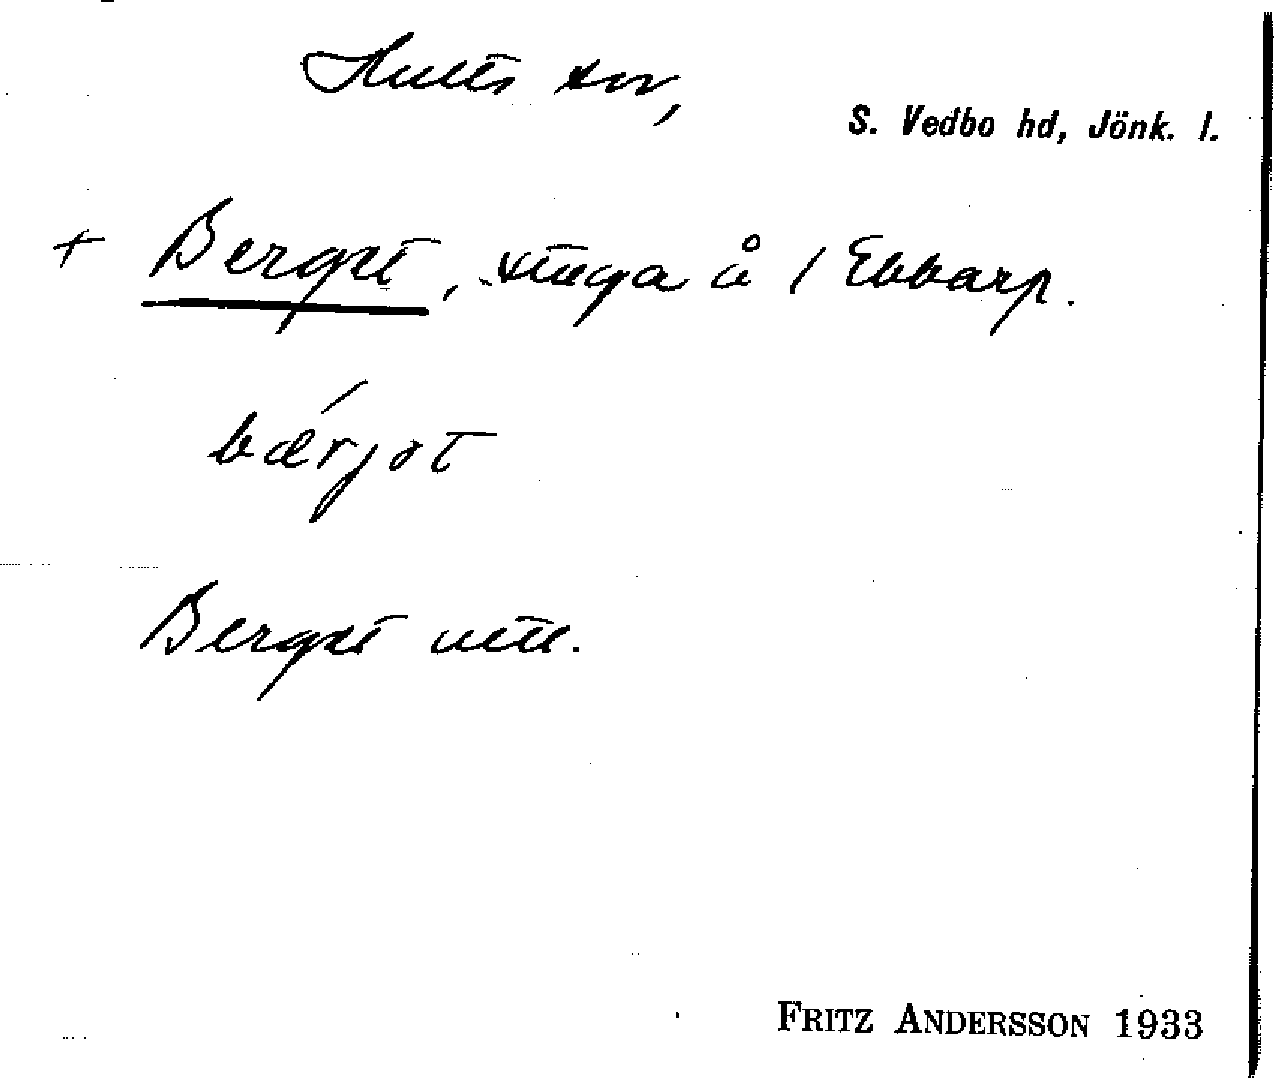 Hults sn,
S. Vedbo hd, Jönk. l.
+ Berget, stuga å 1 Ebbarp.
bǽrjət
Berget utt.
FRITZ ANDERSSON 1933